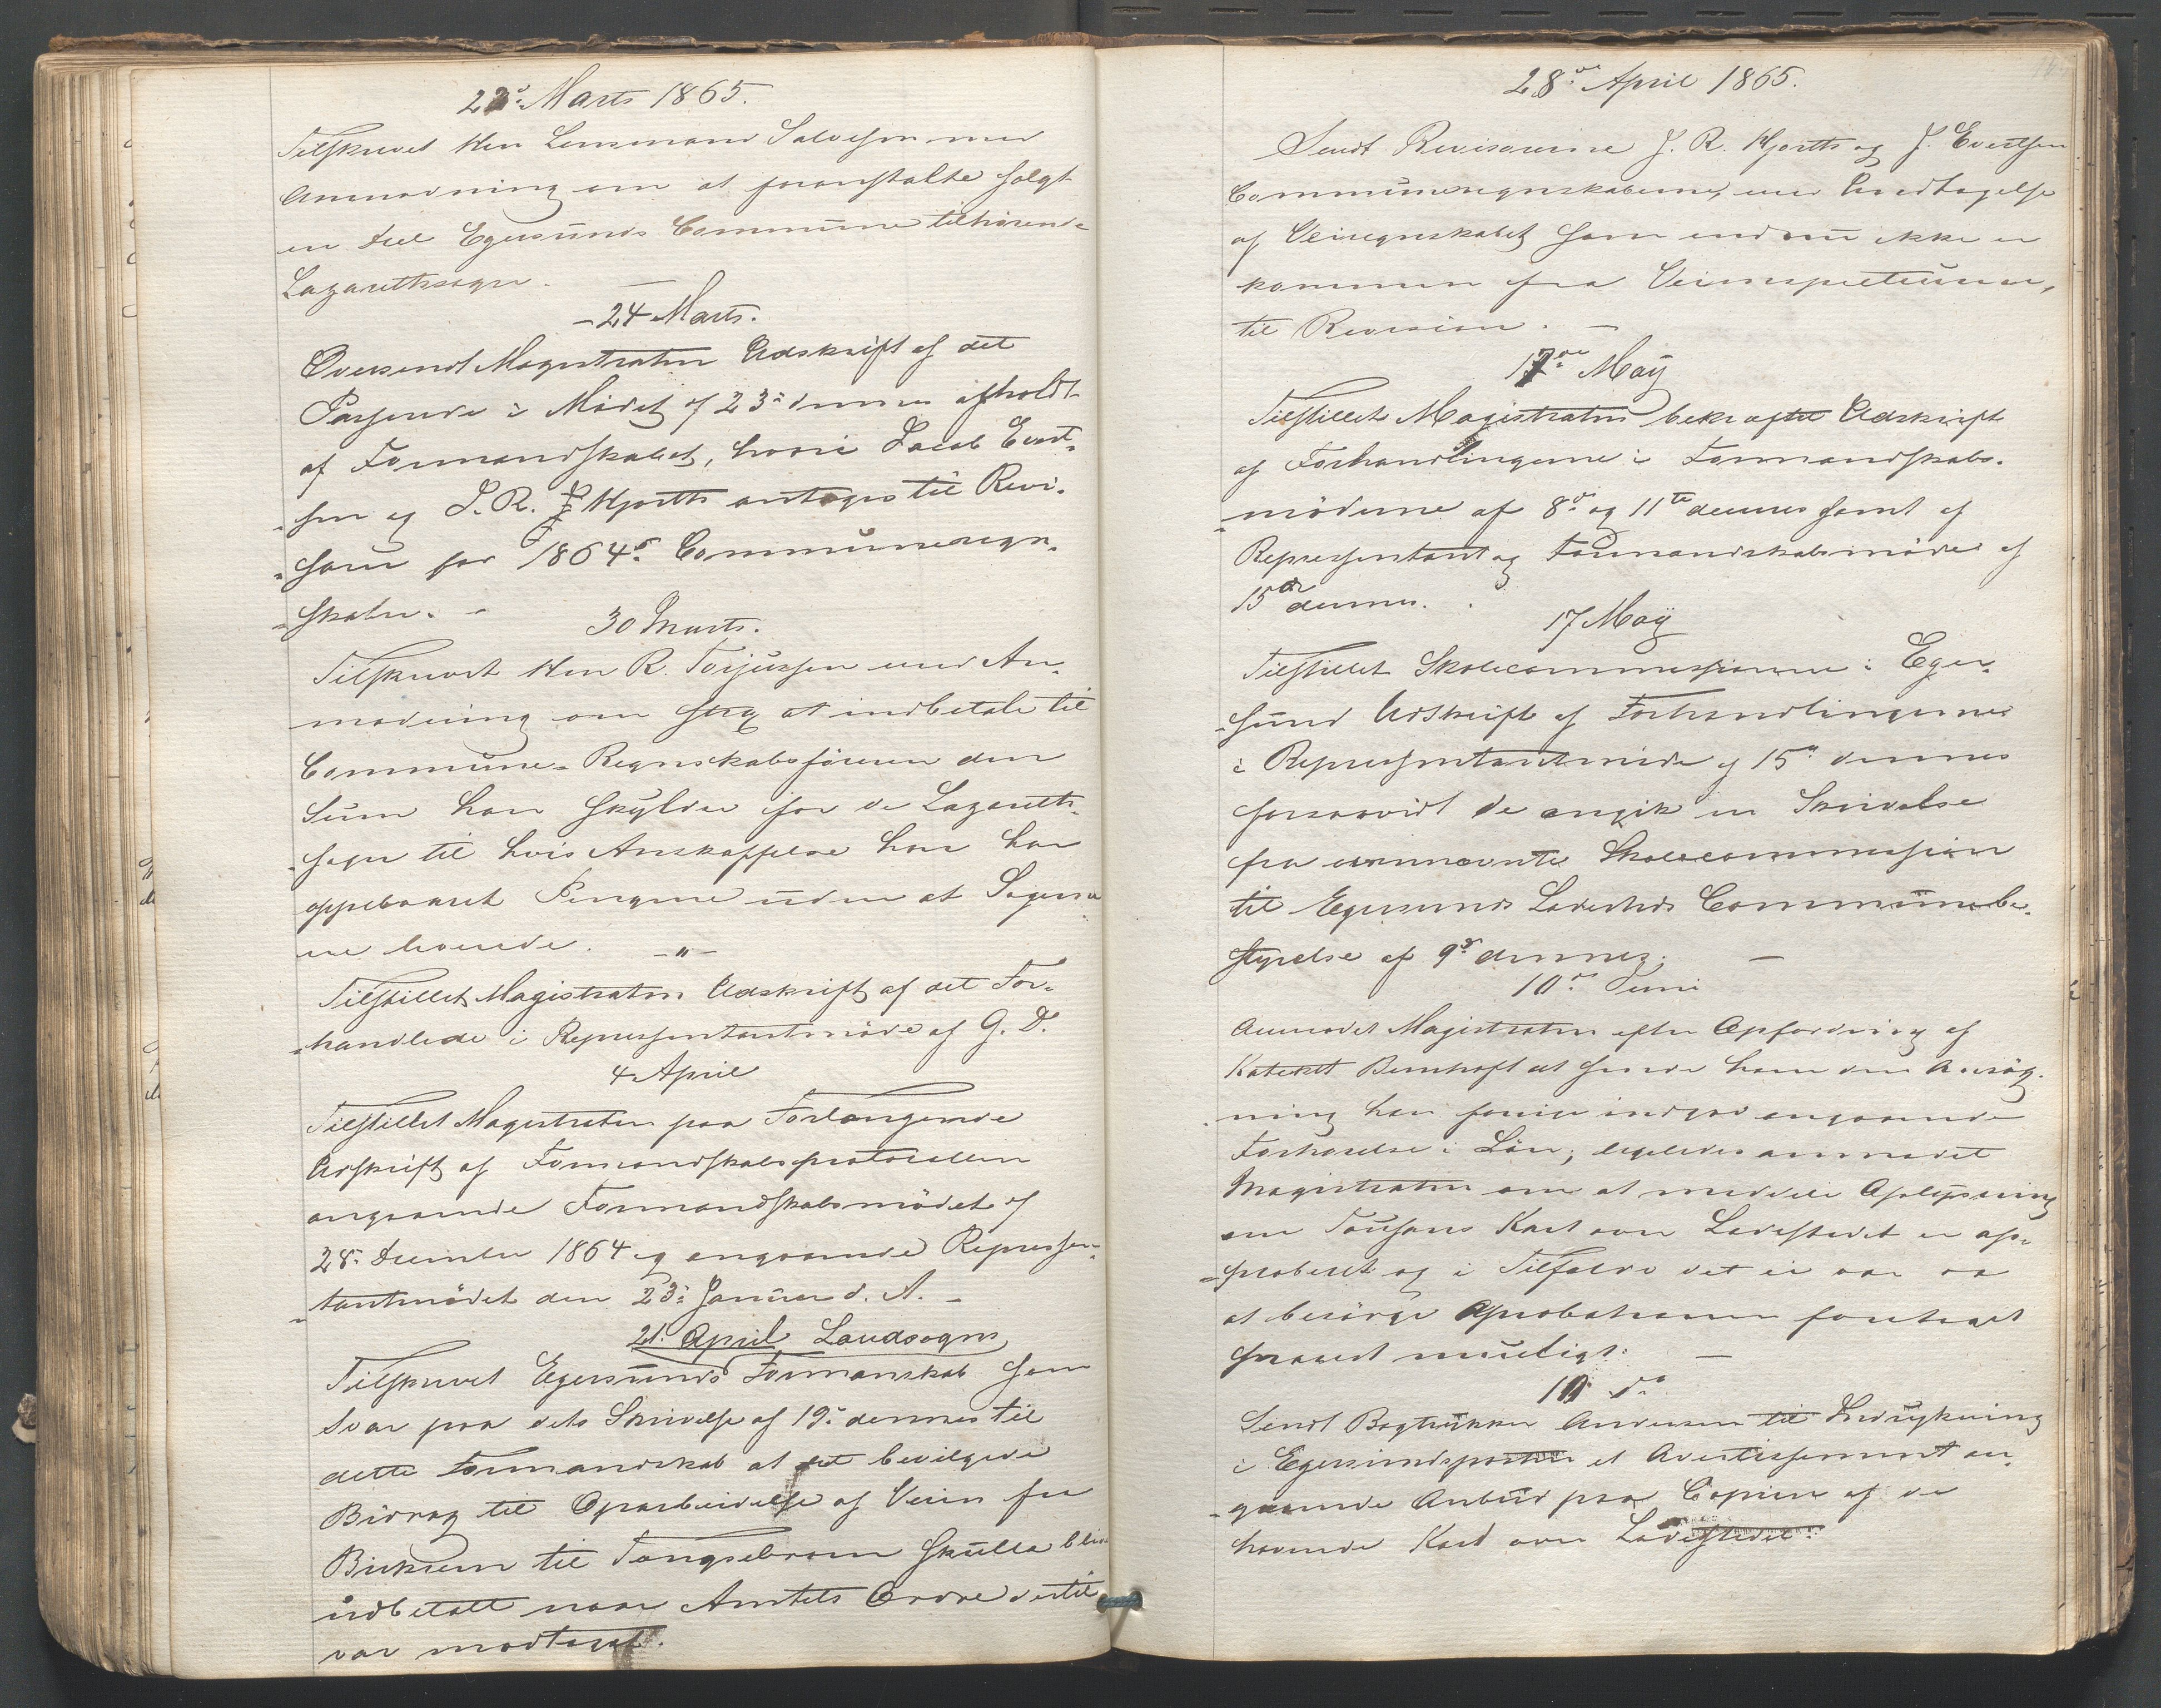 23de Marts 1865.
Tilskrevet Herr Lensmand Salvesen med
Anmodning om at foranstalte solgt
en Deel Egersunds Commune tilhørende
Lazarethsager.
- 24 Marts.
Oversendt Magistraten Udskrift af det
Passerede i Mødet af 23de dennes afholdt
af Formandskabet, hvori Jacob Evert-
sen og J. R. Hjorth antoges til Revi-
sorer for 1864de Communeregn-
skaber. -
30 Marts.
Tilskrevet Herr R. Torjussen med An-
modning om strax at indbetale til
Commune-Regnskabsføreren den
Sum han skylder for de Lazareth-
sager til hvis Anskaffelse han har
oppebaaret Pengene uden at Sagerne
ere leverede. -"-
Tilstillet Magistraten Udskrift af det For-
handlede i Representantmøde af G. D.
4 April
Tilstillet Magistraten paa Forlangende
Udskrift af Formandskabsprotocollen
angaaende Formandskabsmødet af
28de December 1864 og angaaende Represen-
tantmødet den 23de Januar d. A. -
21. April Landsogns
Tilskrevet Egersunds Formanskab som
Svar paa dets Skrivelse af 19de dennes til
dette Formandskab at det bevilgede
Bidrag til Oparbeidelse af Veien fra
Birksem til Tengsebroen skulle blive
udbetalt naar Amtets Ordre dertil
var modtaget.
28de April 1865.
Sendt Revisorerne J. R. Hjorth og J. Evertsen
Communeregnskaberne, med Undtagelse
af Veiregnskabet som endnu ikke er
kommen fra Veiinspecteurene,
til Revision. -
17de Maÿ
Tilstillet Magistraten bekræftet Udskrift
af Forhandlingerne i Formandskabs-
møderne af 8de og 11te dennes samt af
Represgentant og Formandskabsmøde af
15de dennes.
17 Maÿ
Tilstillet Skolecommissionen i Eger-
sund Udskrift af Forhandlingerne
i Representantmøde af 15de dennes
forsaavidt de angik en Skrivelse
fra ermeldte Skolecommission
til Egersunds Ladesteds Communebe-
styrelse af 9de dennes. -
10de Juni
Anmodet Magistraten efter Opfordring af
Kateket Bernhoft at sende ham den Ansøg-
ning han forrige indgav angaaende
Forhøielse i Løn; ligeledes anmodet
Magistraten om at meddele Oplysning
om Kart over Ladestedet er ap-
proberet og i Tilfælde det ei var da
at besørge Aprobationen foretaget
snarest mueligt. -
10 do
Sendt Bogtrykker Andersen til Indrykning
i Egersundsposten et Avertissement an-
gaaende Anbud paa Copier af de
havende Kart over Ladestedet.